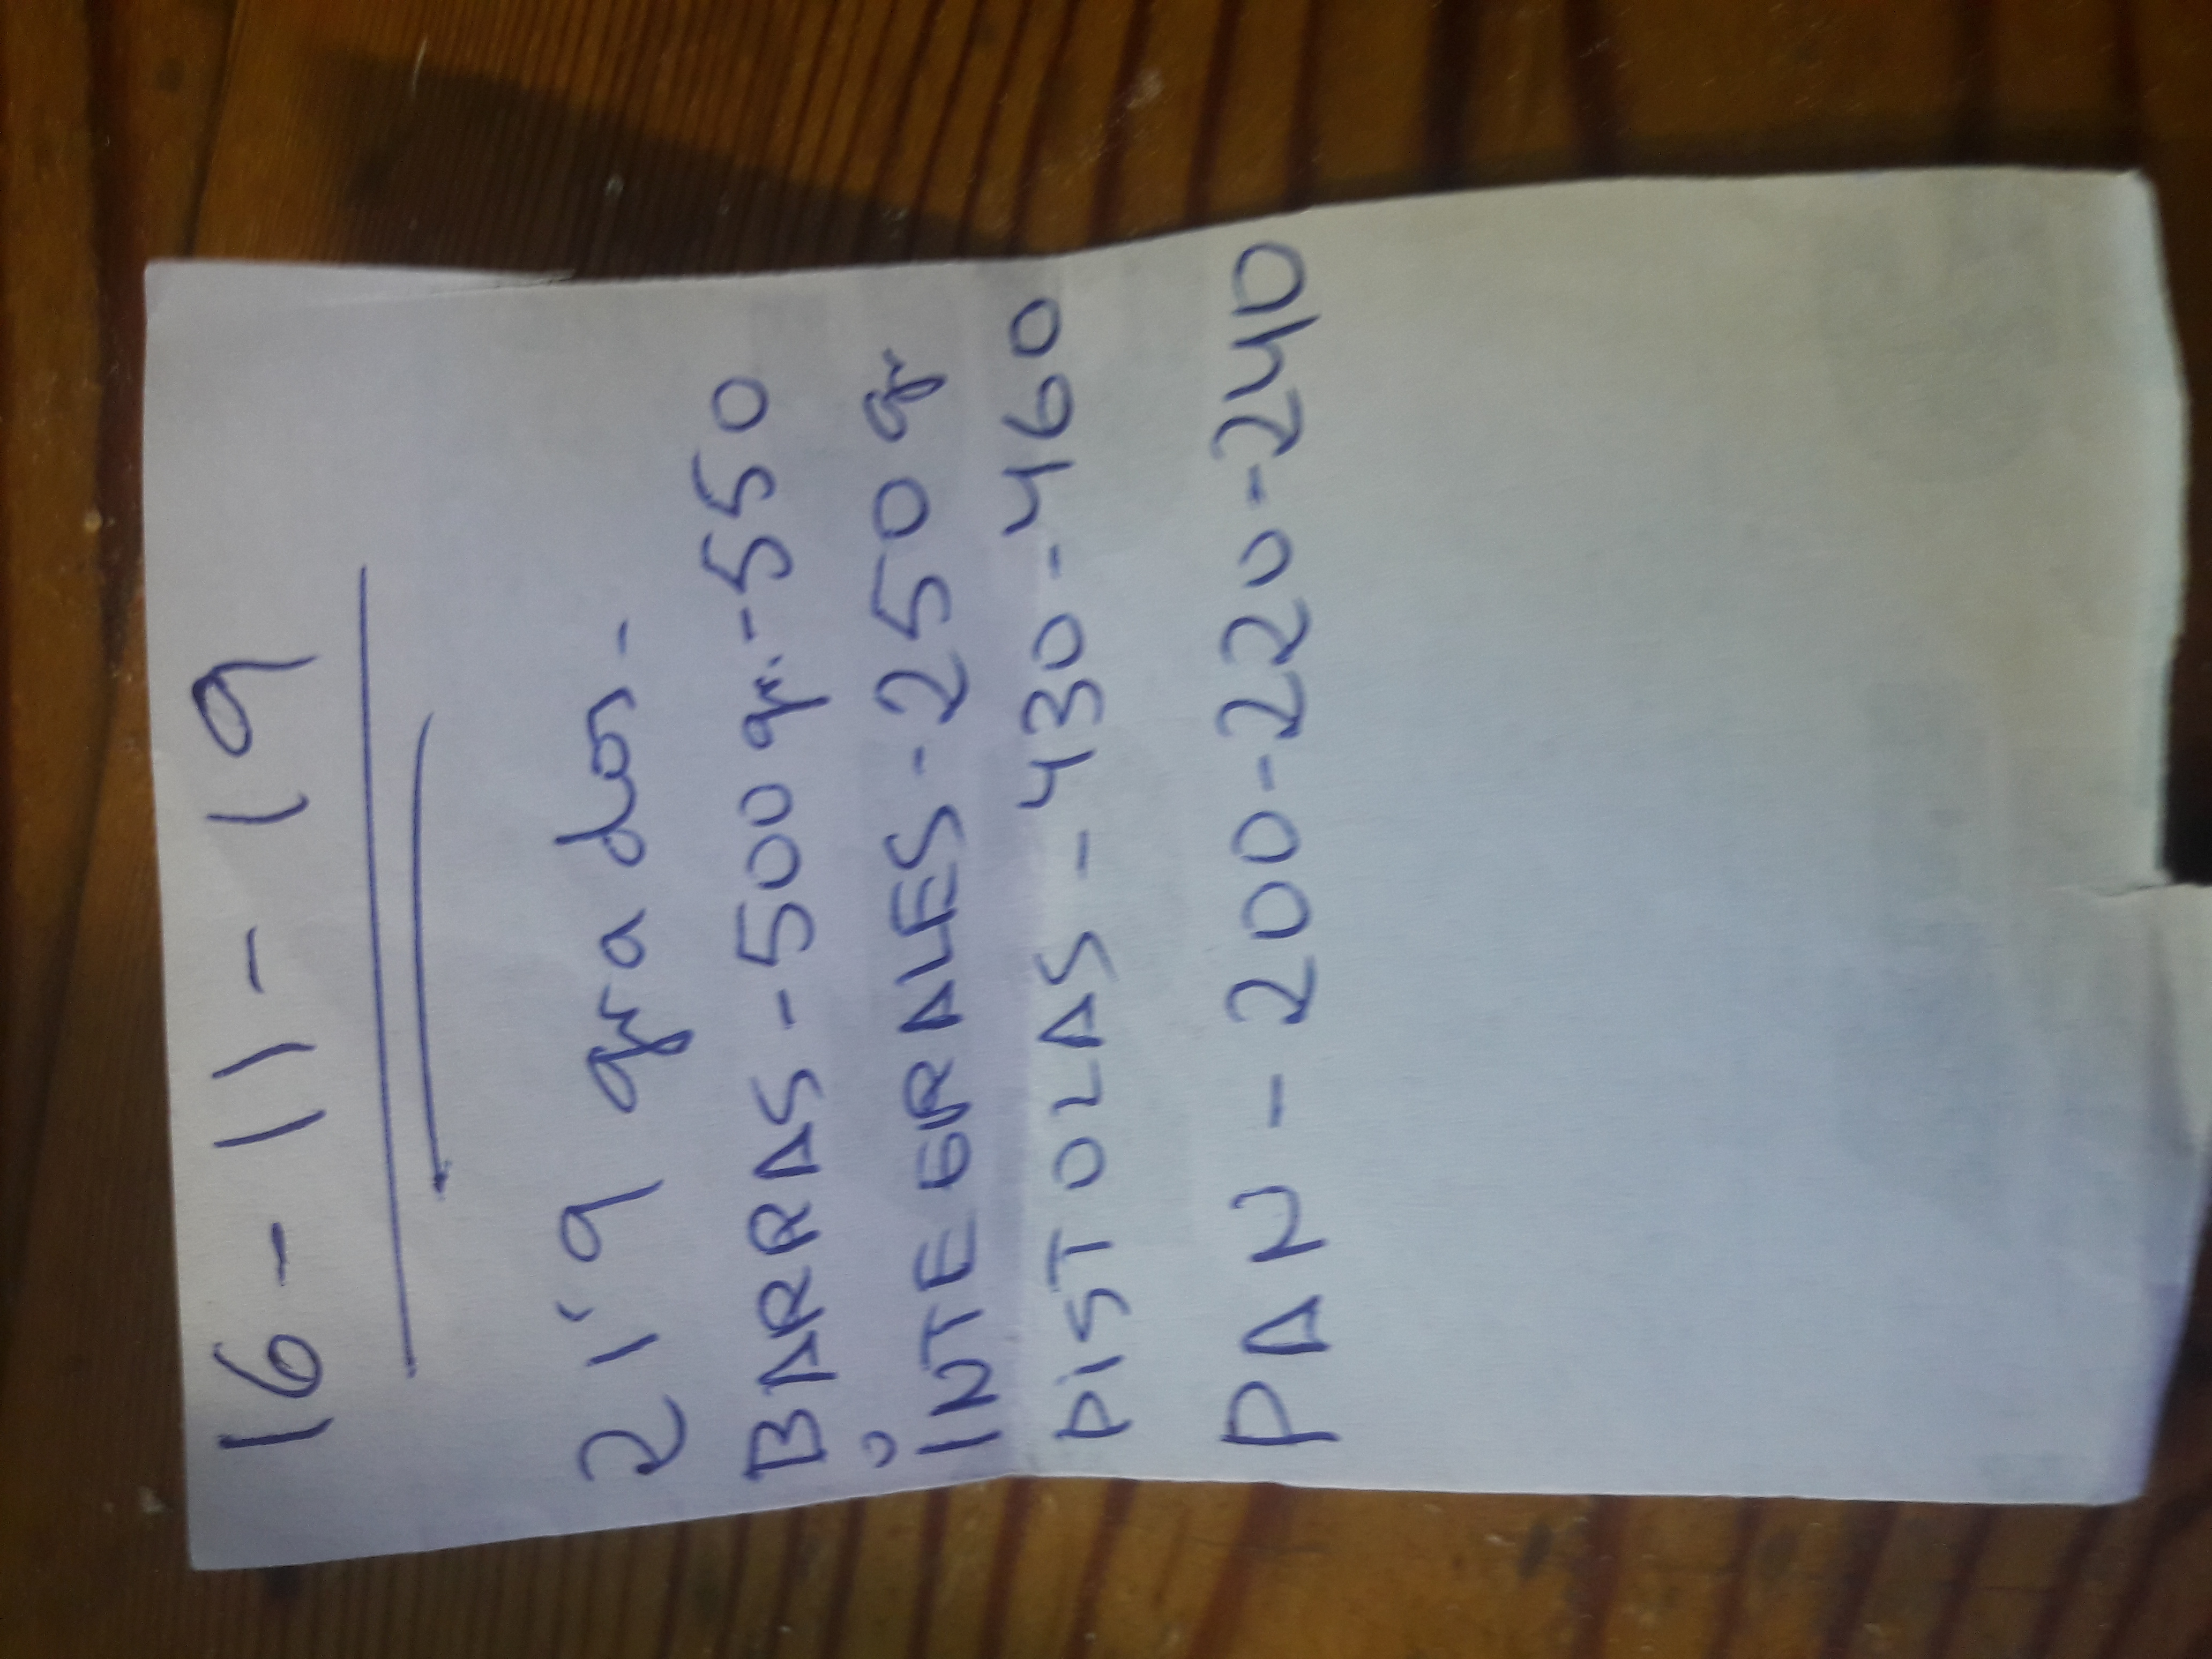 16-11-19
21'9 grados.-
BARRAS-500 gr.-550
INTEGRALES-250 gr
PISTOLAS-430-460
PAN-200-220-240